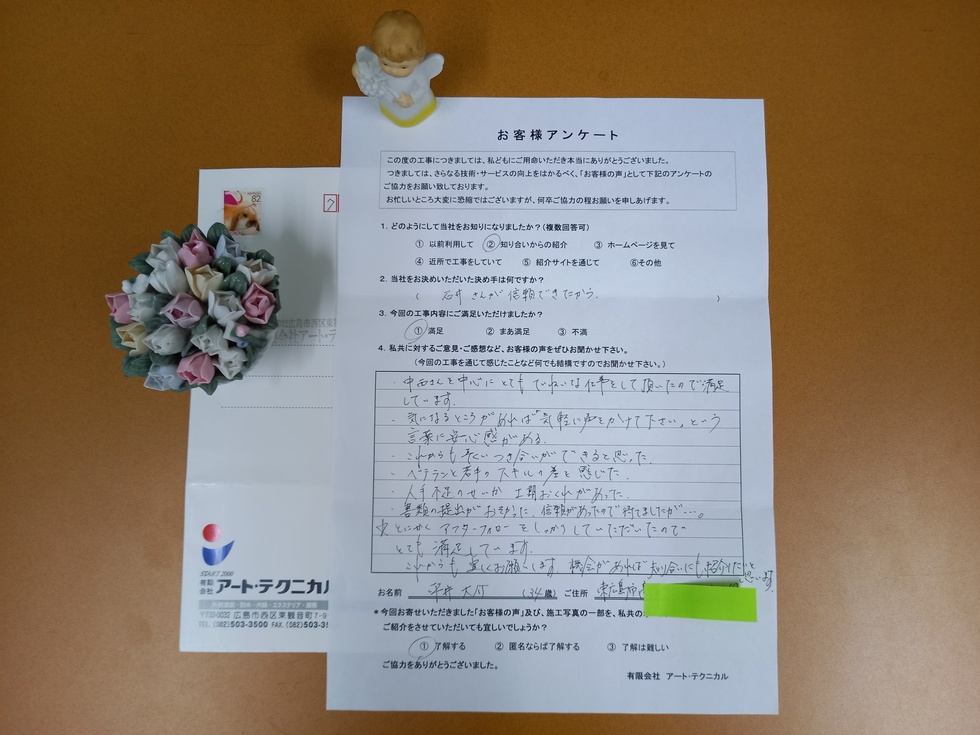 お客様アンケート
この度の工事につきましては、私どもにご用命いただき本当にありがとうございました。
つきましては、さらなる技術・サービスの向上をはかるべく、「お客様の声」として下記のアンケートの
ご協力をお願い致しております。
お忙しいところ大変に恐縮ではございますが、何卒ご協力の程お願いを申しあげます。
1. どのようにして当社をお知りになりましたか?(複数回答可)
① 以前利用して ② 知り合いからの紹介 ③ ホームページを見て
④ 近所で工事をしていて ⑤ 紹介サイトを通じて ⑥その他
2. 当社をお決めいただいた決め手は何ですか?
( 石井さんが信頼できたから. )
3. 今回の工事内容にご満足いただけましたか?
① 満足 ② まあ満足 ③ 不満
4. 私共に対するご意見・ご感想など、お客様の声をぜひお聞かせ下さい。
(今回の工事を通じて感じたことなど何でも結構ですのでお聞かせ下さい。)
・中西さんを中心にとてもていねいな仕事をして頂いたので満足
しています.
・気になるところがあれば"気軽に声をかけて下さい"という
言葉に安心感がある.
・これからも長いつき合いができると思った.
・ベテランと若手のスキルの差を感じた.
・人手不足のせいか工期おくれがあった.
・書類の提出がおそかった. 信頼があったので待てましたが….
☆とにかくアフターフォローをしっかりしていただいたので
とても満足しています.
これからも宜しくお願いします. 機会があれば知り合いにも紹介したいと思います.
お名前 平井 (34歳) ご住所 東広島市
*今回お寄せいただきました「お客様の声」及び、施工写真の一部を、私共の
ご紹介をさせていただいても宜しいでしょうか?
① 了解する ② 匿名ならば了解する ③ 了解は難しい
ご協力をありがとうございました。
有限会社 アート・テクニカル
82
START 2000
有限会社 アート・テクニカル
〒733-0032 広島市西区東観音町7-9
TEL.(082)503-3500 FAX.(082)503-3